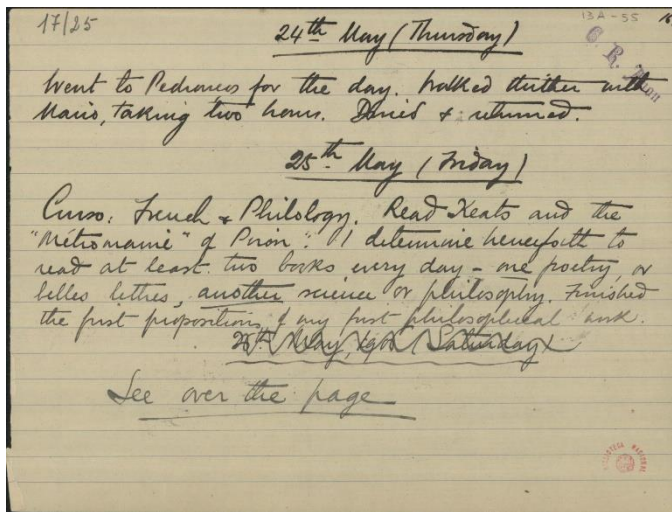 17/25
13A-55 16
C. R. Anon
24th May (Thursday)
Went to Pedrouços for the day. Walked thither with
Mario, taking two hours. Dined & returned.
25th May (Friday)
Curso: French & Philology. Read Keats and the
"Métromanie" of Piron". I determine henceforth to
read at least two books every day – one poetry, or
belles lettres, another science or philosophy. Finished
the first propositions of my first philosophical work.
26th May, 1906 (Saturday)
See over the page
BIBLIOTECA NACIONAL